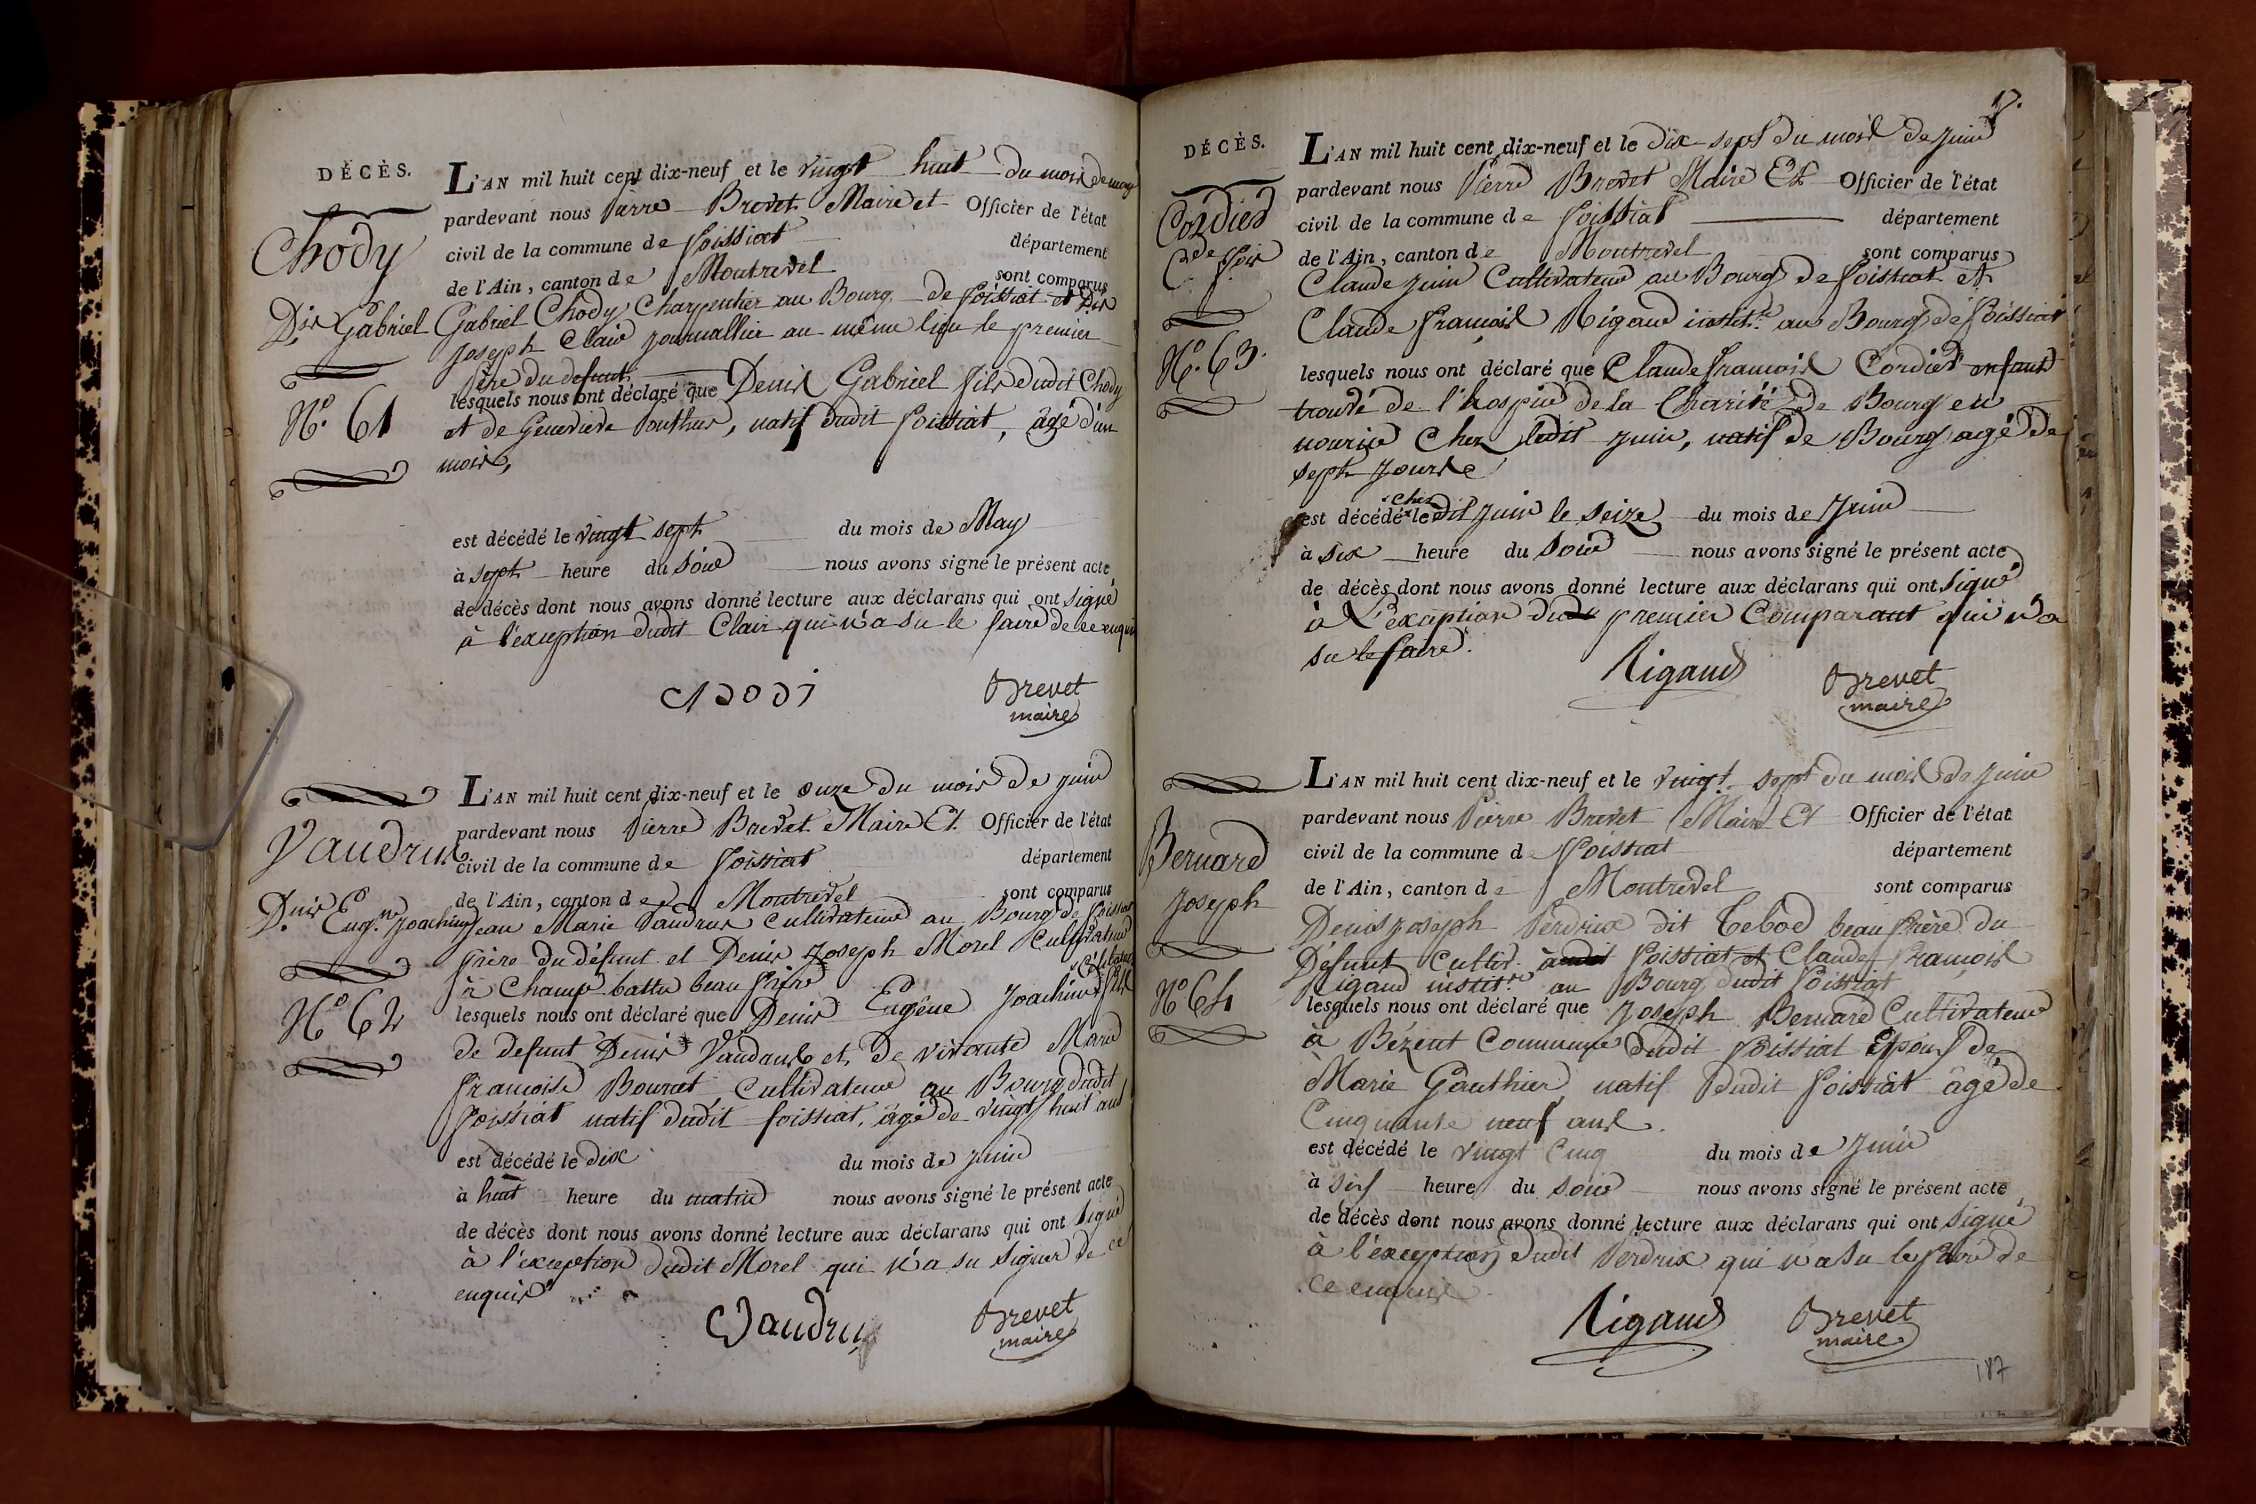 DÉCÈS.
Chody
Dis Gabriel
N.° 61
L'AN mil huit cent dix-neuf et le vingt huit du mois de may
pardevant nous Pierre Brevet Maire et Officier de l'état
civil de la commune de foissiat département
de l'Ain, canton de Montrevel sont comparus
Gabriel Chody Charpentier au Bourg de foissiat et Dis
Joseph Clair journallier au même lieu le premier
Père du defunt
lesquels nous ont déclaré que Denis Gabriel fils dudit Chody
et de Genevieve, natif dudit foissiat, âgé d'un
mois,
est décédé le vingt sept du mois de May
à sept heure du soir nous avons signé le présent acte
de décès dont nous avons donné lecture aux déclarans qui ont signé
à l'exception dudit Clair qui n'a su le faire de ce enquis
Chodi Brevet
maire
Vaudrux
Denis Eug.ne Joachim
N.° 62
L'AN mil huit cent dix-neuf et le onze du mois de juin
pardevant nous Pierre Brevet Maire Et Officier de l'état
civil de la commune de foissiat département
de l'Ain, canton de Montrevel sont comparus
Jean Marie Vaudrux cultivateur au Bourg de foissiat
frère du défunt et Denis Joseph Morel Cultivateur
à Champ battu beau frère
Célibataire
lesquels nous ont déclaré que Denis Eugêne Joachim fils
de defunt Denis Vaudrux et de vivante Marie
francoise Bournet cultivateur au Bourg dudit
foissiat natif dudit foissiat, âgé de vingt huit ans
est décédé le dix du mois de juin
à huit heure du matin nous avons signé le présent acte
de décès dont nous avons donné lecture aux déclarans qui ont signé
à l'exception dudit Morel qui n'a su signer de ce
enquis
Vaudrux Brevet
maire
17.
DÉCÈS.
Cordier
C.de f.ois
N.° 63.
L'AN mil huit cent dix-neuf et le dix sept du mois de juin
pardevant nous Pierre Brevet Maire Et Officier de l'état
civil de la commune de foissiat département
de l'Ain, canton de Montrevel sont comparus
Claude juin Cultivateur au Bourg de foissiat et
Claude françois Rigaud instit.r au Bourg de foissiat
lesquels nous ont déclaré que Claude francois Cordier enfant
trouvé de l'hospice de la Charité de Bourg en
nourice chez ledit juin, natif de Bourg agé de
sept jours
chez
est décédé ledit juin le seize du mois de juin
à six heure du soir nous avons signé le présent acte
de décès dont nous avons donné lecture aux déclarans qui ont signé
à L'exception du premier Comparant qui n'a
su le faire.
Rigaud Brevet
maire
Bernard
Joseph
N.° 64
L'AN mil huit cent dix-neuf et le vingt sept du mois de juin
pardevant nous Pierre Brevet Maire Et Officier de l'état
civil de la commune de foissiat département
de l'Ain, canton de Montrevel sont comparus
Denis joseph Perdrix dit Tebod beau frère du
Défunt cultiv. foissiat et Claude françois
Rigaud instit.r au Bourg dudit foissiat
lesquels nous ont déclaré que Joseph Bernard Cultivateur
à Bézent Commune dudit foissiat Epoux de
Marie Gauthier natif dudit foissiat âgé de
Cinquante neuf ans.
est décédé le vingt cinq du mois de juin
à six heure du soir nous avons signé le présent acte
de décès dont nous avons donné lecture aux déclarans qui ont signé
à l'exception dudit Perdrix qui n'a su le faire de
ce enquis
Rigaud Brevet
maire
187